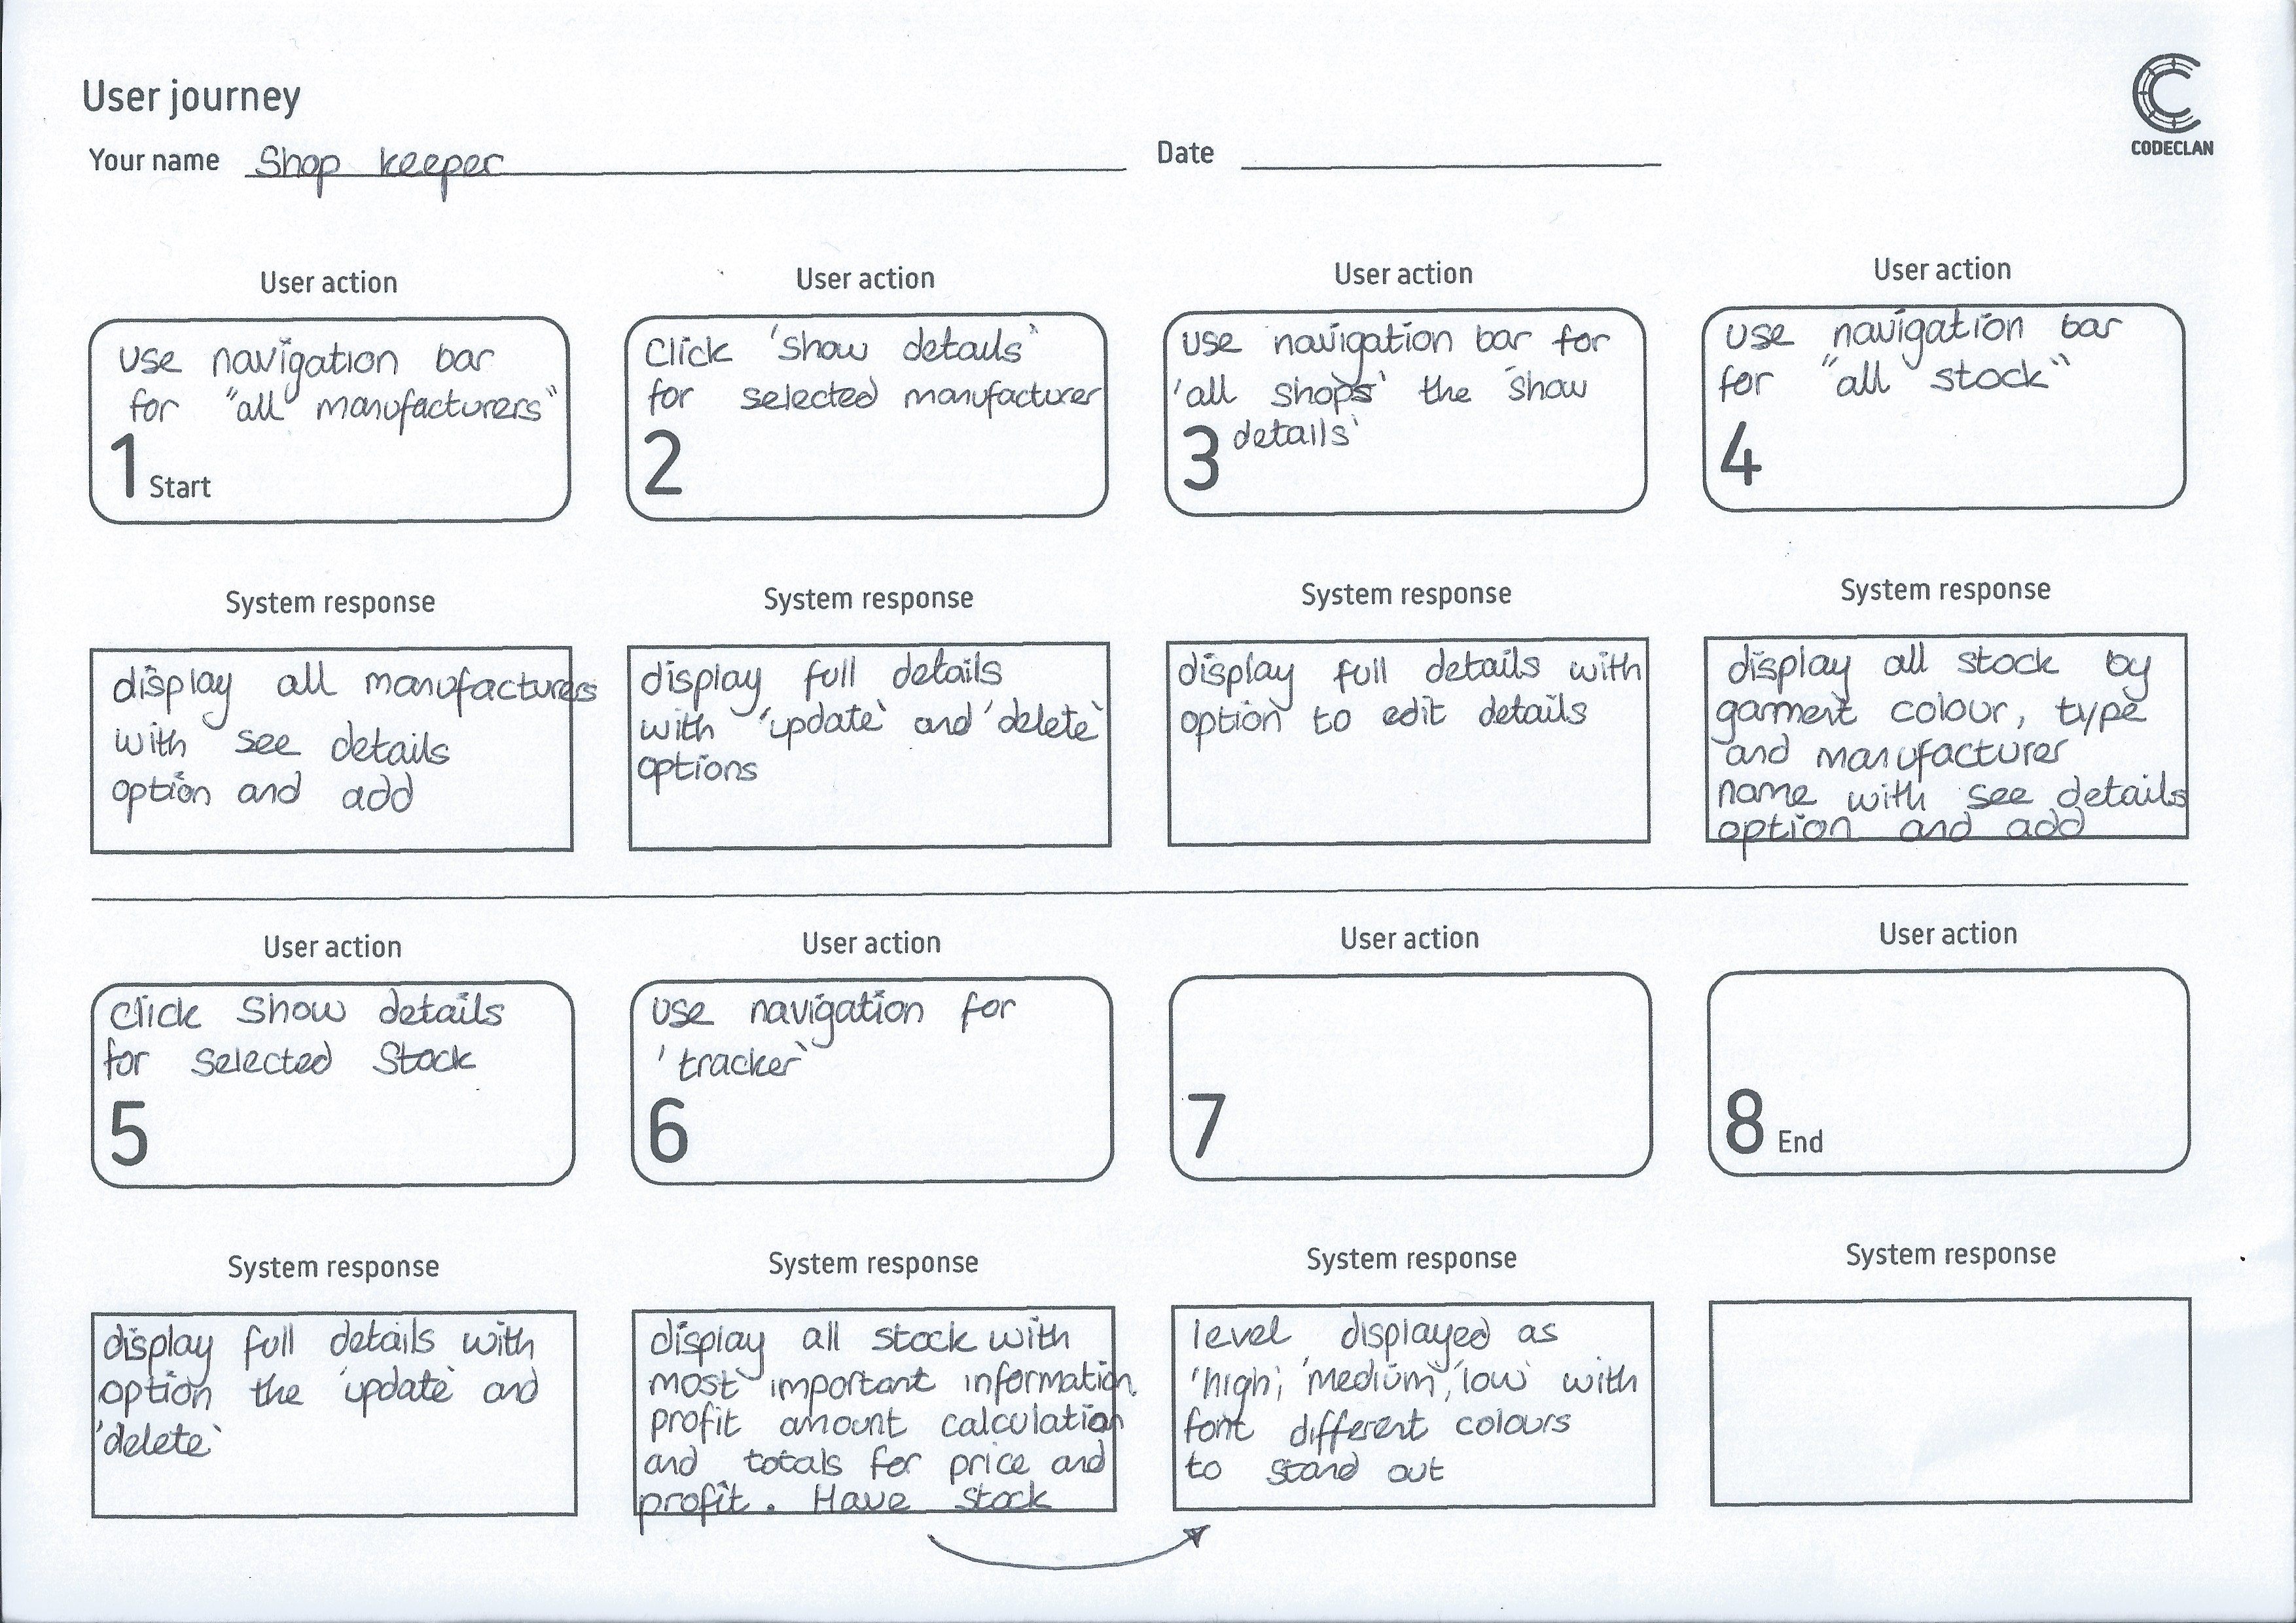 User journey
CODECLAN
Your name Shop keeper Date
User action
use navigation bar
for "all manufacturers"
1 Start
User action
Click 'show details'
for selected manufacturer
2
User action
use navigation bar for
'all shops' the 'show
details'
3
User action
use navigation bar
for "all stock"
4
System response
display all manufacturers
with see details
option and add
System response
display full details
with 'update' and 'delete'
options
System response
display full details with
option to edit details
System response
display all stock by
garment colour, type
and manufacturer
name with see details
option and add
User action
Click Show details
for selected Stock
5
User action
use navigation for
'tracker'
6
User action
7
User action
8 End
System response
display full details with
option the 'update' and
'delete'
System response
display all stock with
most important information,
profit amount calculation
and totals for price and
profit. Have stock
System response
level displayed as
'high', 'medium', 'low' with
font different colours
to stand out
System response